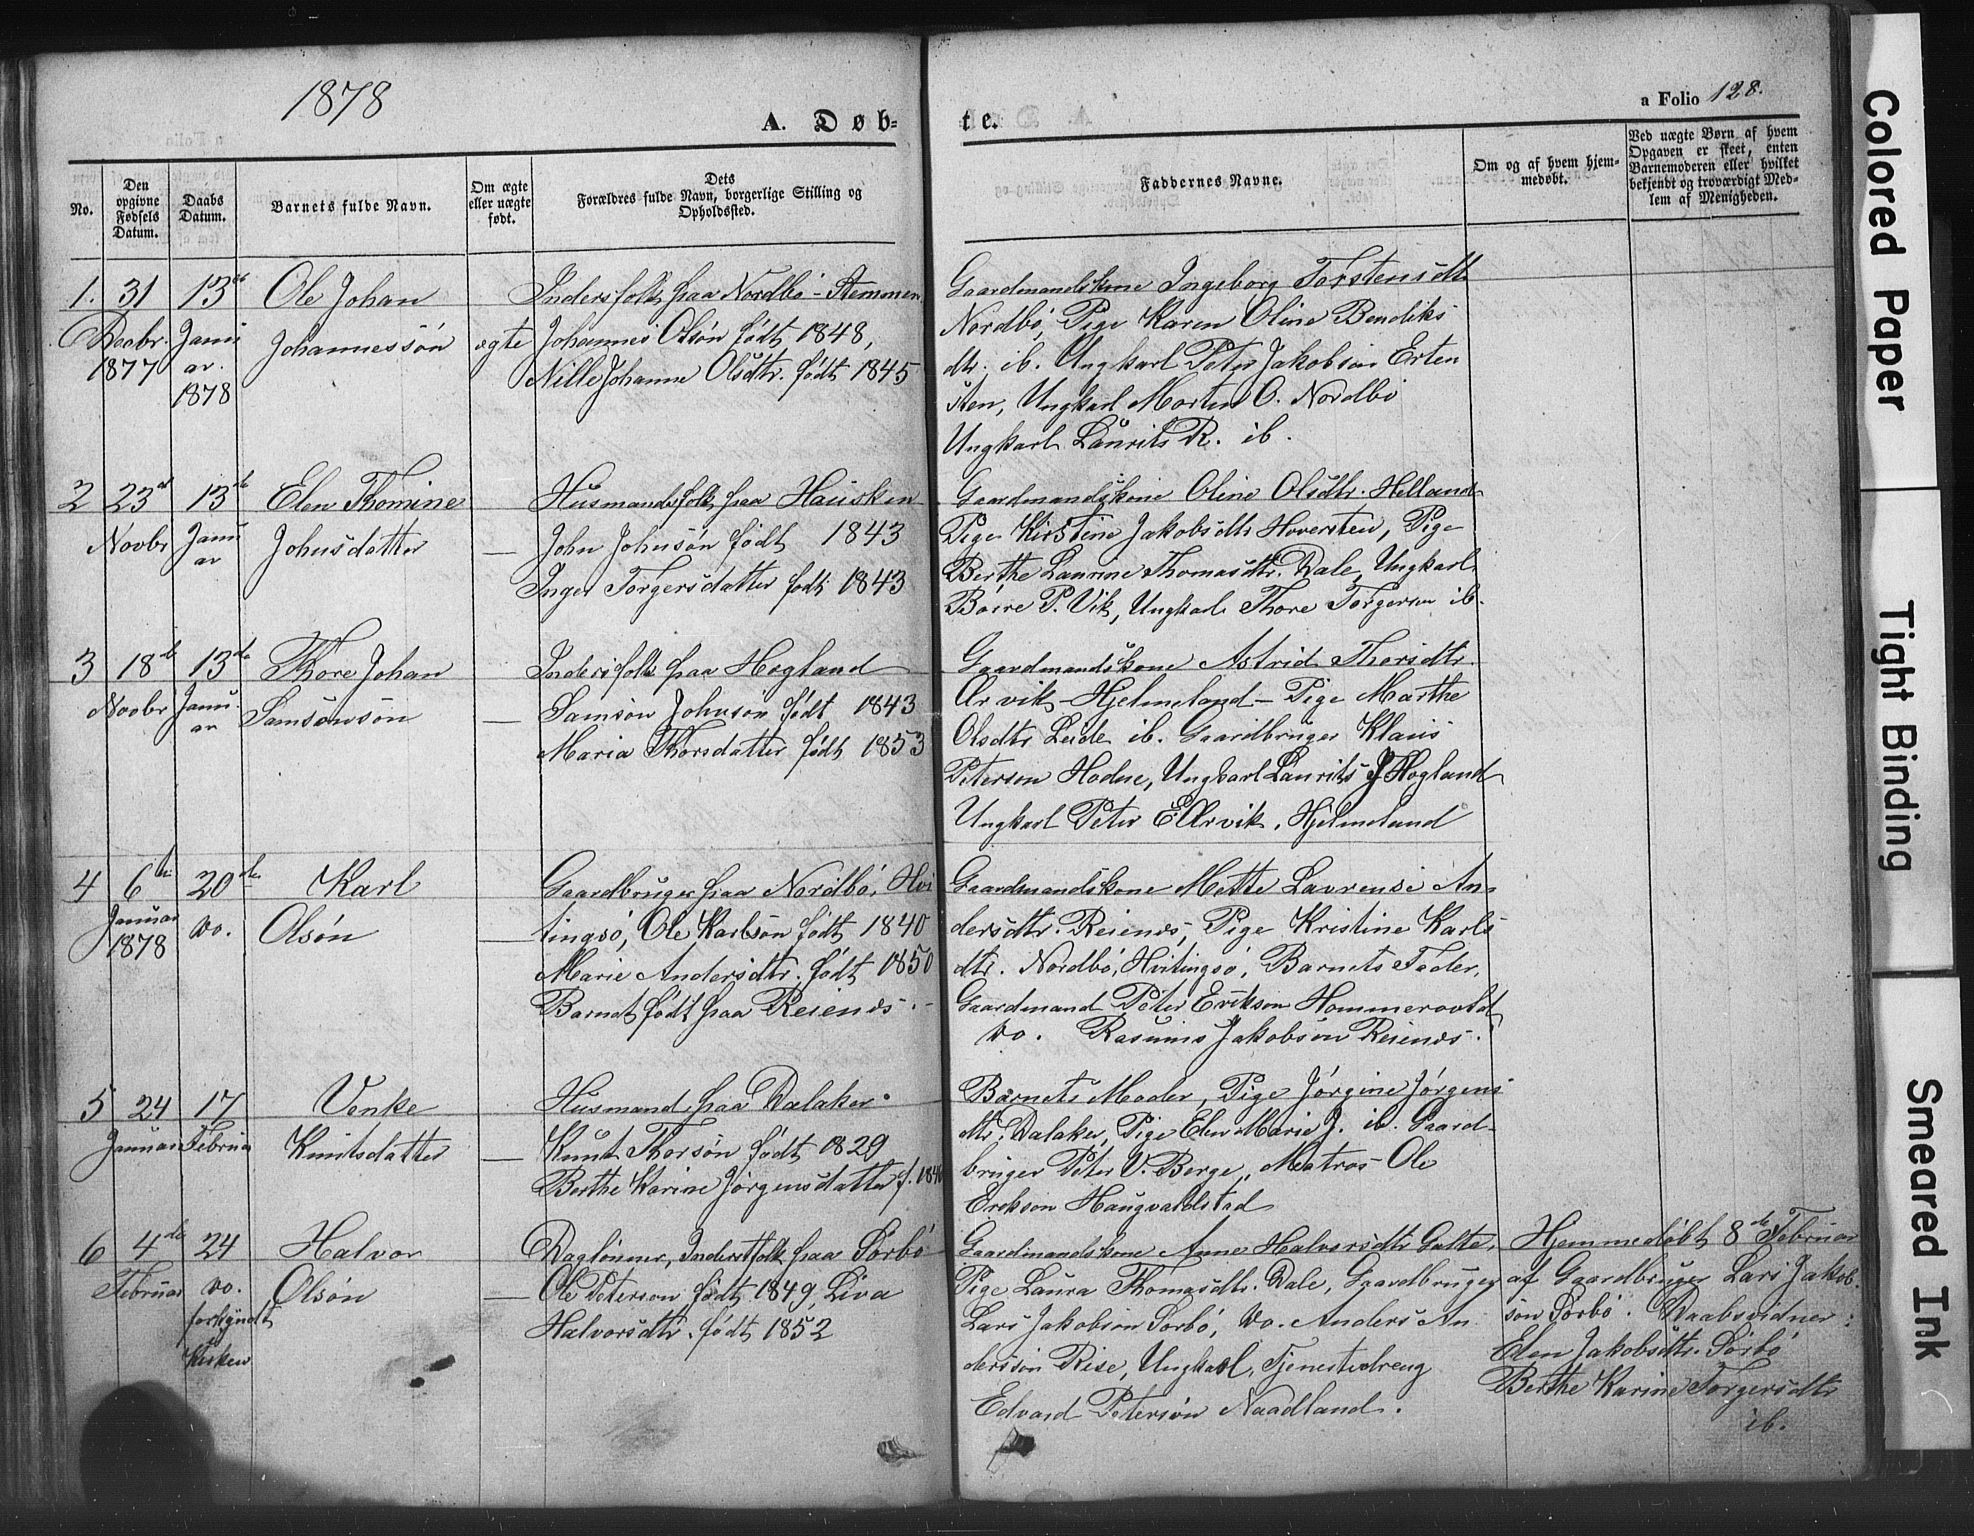 1878
A. Døb-
te.
a Folio 128.
No.
Den opgivne Fødsels Datum.
Daabs Datum.
Barnets fulde Navn.
Om ægte eller uægte født.
Dets Forældres fulde Navn, borgerlige Stilling og Opholdssted.
Faddernes Navne.
Om og af hvem hjemmedøbt.
Ved uægte Børn af hvem Opgaven er skeet, enten Barnemoderen eller hvilket bekjendt og troværdigt Medlem af Menigheden.
1. 31 13de Ole Johan Indersfolk paa Nordbø-Stemmen
Decbr. Janu Johannessøn ægte Johannes Olsøn født 1848,
1877 ar. Nille Johanne Olsdtr. født 1845
1878
Gaardmandskone Ingeborg Torstensdtr
Nordbø, Pige Karen Oline Bendiks
dtr. ib. Ungkarl Peter Jakobsøn Erten
sten, Ungkarl Morten O. Nordbø
Ungkarl Laurits R. ib.
2 23d 13de Elen Thomine Husmandsfolk paa Hausken
Novbr Janu Johnsdatter — John Johnsøn født 1843
ar Inger Torgersdatter født 1843
Gaardmandskone Oline Olsdtr. Helland
Pige Kirstine Jakobsdtr Hoversten, Pige
Berthe Laurine Thomasdtr. Dale, Ungkarl
Børre P. Vik, Ungkarl Thore Torgersen ib.
3 18de 13de Thore Johan Indersfolk paa Hogland
Novbr Janu Samsonsøn — Samson Johnson født 1843
ar Maria Thorsdatter født 1853
Gaardmandskone Astrid Thorsdtr.
Arvik - Hjelmeland - Pige Marthe
Olsdtr Leide ib. Gaardbruger Klaus
Peterson Hodne, Ungkarl Laurits J. Hogland
Ungkarl Peter E Arvik, Hjelmeland
4 6te 20de Karl Gaardbruger paa Nordbø, Hvi
Januar do. Olsøn — tingsø, Ole Karlsøn født 1840
1878 Marie Andersdtr. født 1850
Barnet født paa Reienes.
Gaardmandskone Mette Laurense An-
dersdtr. Reienes, Pige Kristine Karls
dtr. Nordbø, Hvitingsø, Barnets Fader,
Gaardmand Peter Erikson Hommersvold
do. Rasmus Jakobson Reienes.
5 24 17 Venke Husmand paa Dalaker.
Januar Februar Knutsdatter — Knut Thorsøn født 1829
Berthe Karine Jørgensdatter f. 1840
Barnets Moder, Pige Jørgine Jørgens
dtr. Dalaker, Pige Elen Marie J. ib. Gaard-
bruger Peter V. Berge, Matros Ole
Erekson Haugvaldstad
6 4de 24 Halvor Daglønner, Inderstfolk paa Sørbø
Februar do. Olsøn — Ole Peterson født 1849, Liva
forkyndt Halvorsdtr. født 1852
i Kirken
Gaardmandskone Anne Halvorsdtr Galte,
Pige Laura Thomasdtr. Dale, Gaardbruger
Lars Jakobson Sørbø, do. Anders An
dersson Rise, Ungkarl, Tjenestedreng
Edvard Petersøn Naadland.
Hjemmedøbt 8de Februar
af Gaardbruger Lars Jakob-
søn Sørbø. Daabsvidner:
Elen Jakobsdtr. Sørbø
Berthe Karine Torgersdtr
ib.
Colored Paper
Tight Binding
Smeared Ink